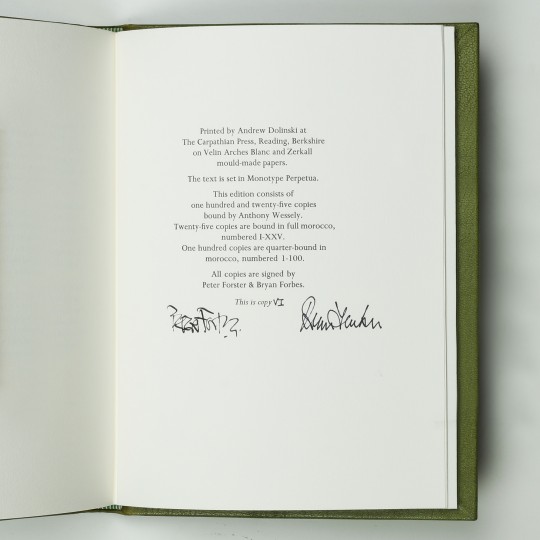 Printed by Andrew Dolinski at
The Carpathian Press, Reading, Berkshire
on Velin Arches Blanc and Zerkall
mould-made papers.
The text is set in Monotype Perpetua.
This edition consists of
one hundred and twenty-five copies
bound by Anthony Wessely.
Twenty-five copies are bound in full morocco,
numbered I-XXV.
One hundred copies are quarter-bound in
morocco, numbered 1-100.
All copies are signed by
Peter Forster & Bryan Forbes.
This is copy VI